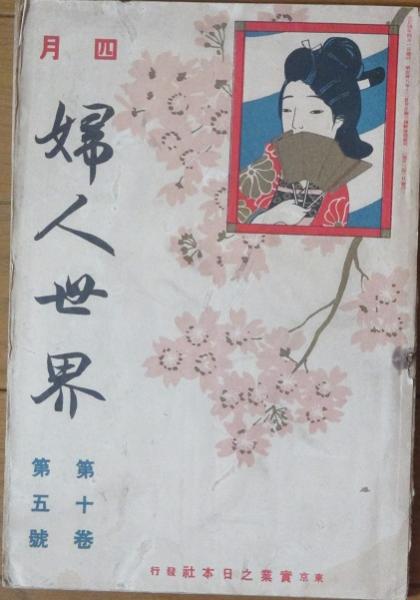 四月
婦人世界
第十巻
第五號
東京實業之日本社發行